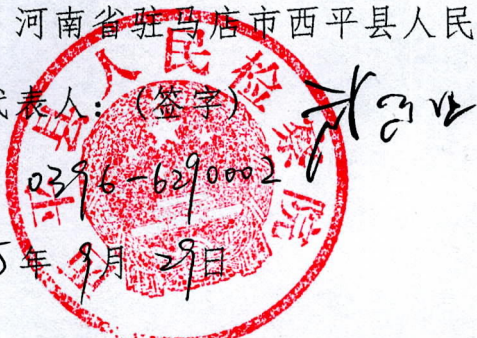 河南省驻马店市西平县人民
代表人：（签字）
0396-6290002
5年 9月 29日
人民检察院